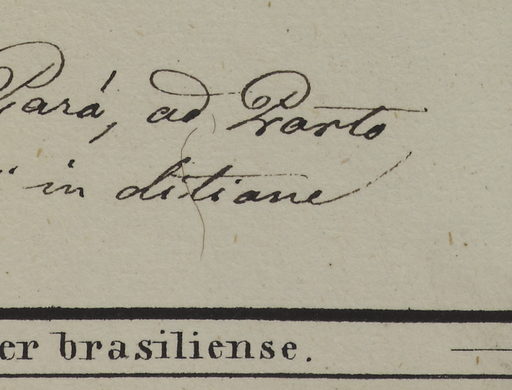 Pará, ad Prarto
in ditiane
er brasiliense.